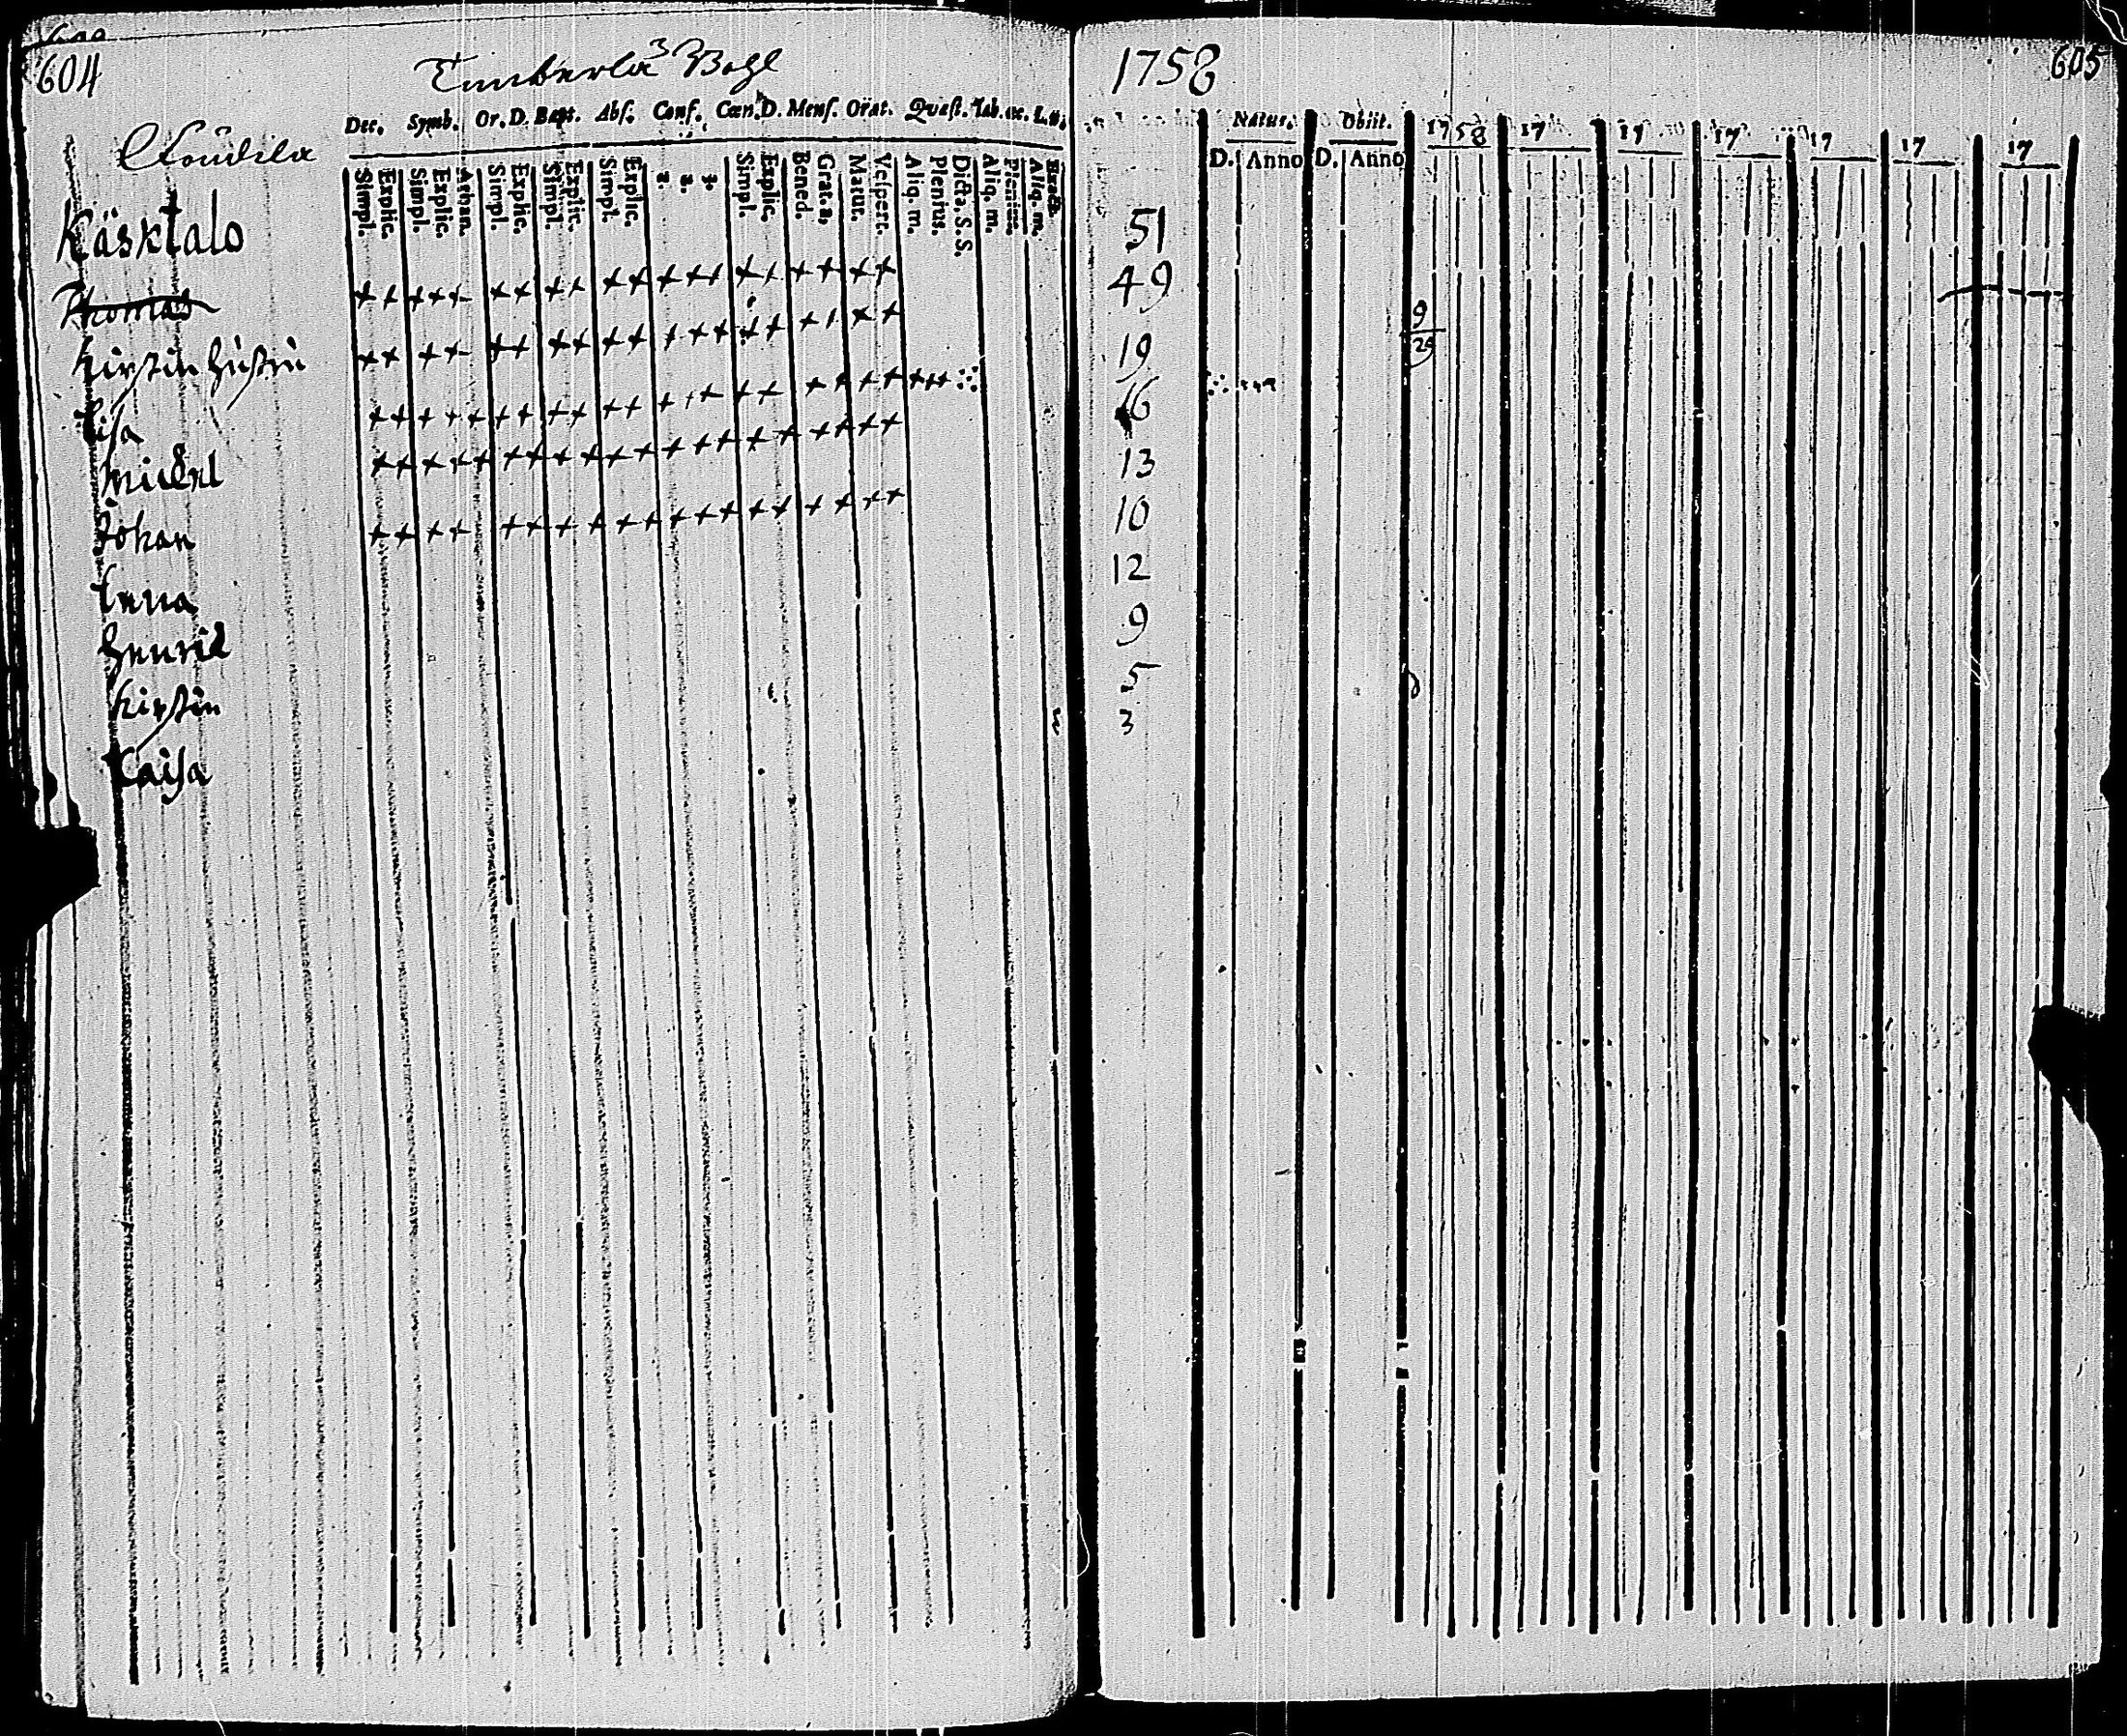 604
3
Dec. Symb. Or. D. Bapt. Abs. Conf. Cœn. D. Mens. Orat. Quæst.
Simpl. Explic. Simpl. Explic. Athan. Simpl. Explic. Simpl. Explic. Simpl. Explic. 1. 2. 3. Simpl. Explic. Bened. Grat. a. Matur. Vesper. Aliq. m. Plenius. Dicta. S. S. Aliq. m. Plenius. Aliq. m.
Käsktalo
Thomas
Kirstin
Lisa
Michel
Johan
Lena
Henrik
Kirstin
Kaisa
1758
605
Natus. Obiit. 1758 17 17 17 17 17 17
D. Anno D. Anno
51
49
9
29
19
16
13
10
12
9
5
3